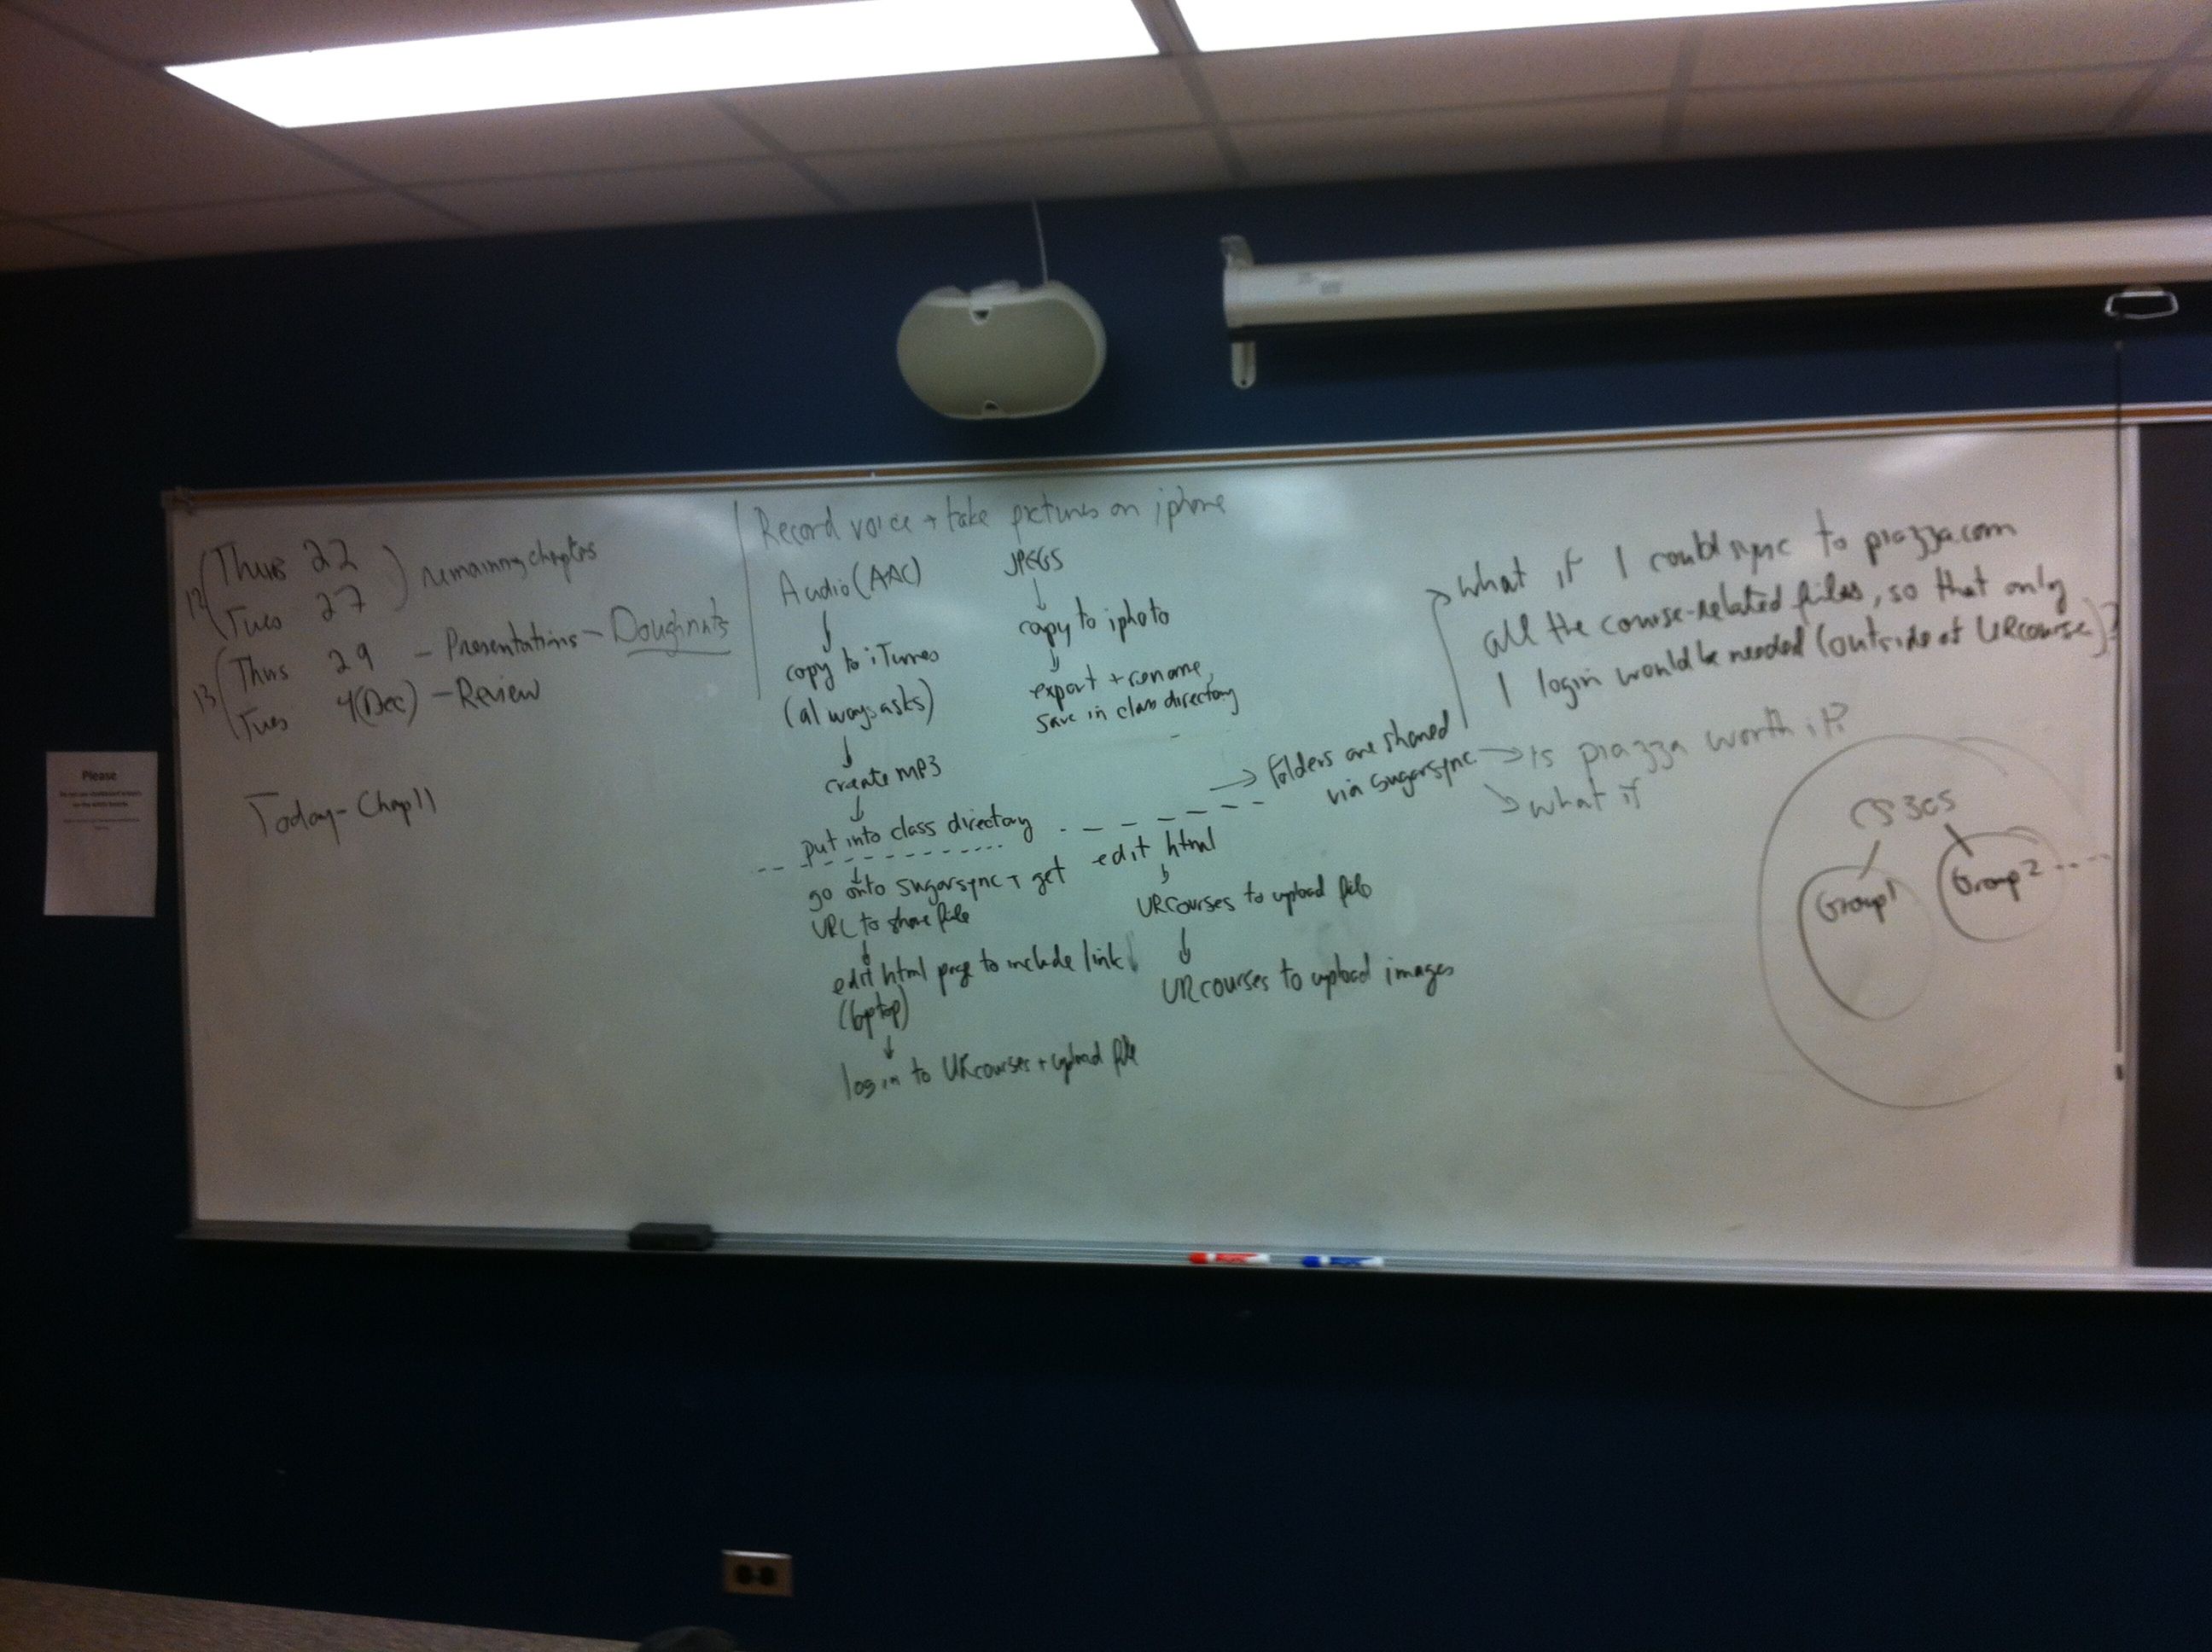 12 Thurs 22
Tues 27
remaining chapters
13 Thurs 29 - Presentations - Doughnuts
Tues 4(Dec) - Review
Today - Chap 11
Record voice + take pictures on iphone
Audio (AAC)
copy to iTunes
(always asks)
create MP3
put into class directory
go onto sugarsync + get
URL to share file
edit html page to include link
(laptop)
log in to URcourses + upload file
JPEGS
copy to iphoto
export + rename,
save in class directory
edit html
URcourses to upload file
URcourses to upload images
folders are shared
via sugarsync
what if I could sync to piazza.com
all the course-related files, so that only
1 login would be needed (outside of URcourse)?
Is piazza worth it?
what if
CS305
Group1
Group2
Please